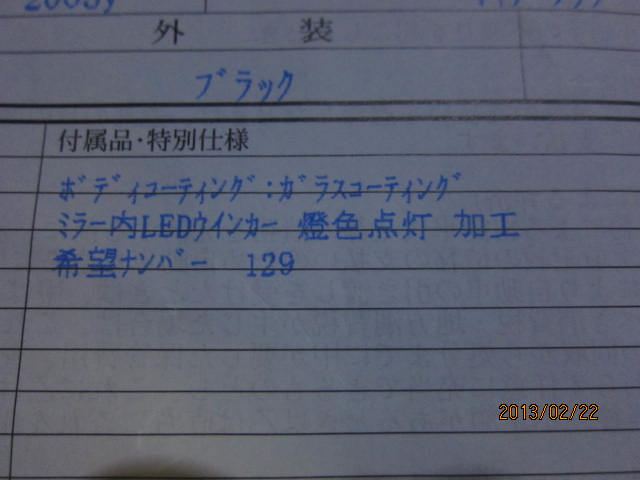 外 装
ﾌﾞﾗｯｸ
付属品・特別仕様
ﾎﾞﾃﾞｨｺｰﾃｨﾝｸﾞ:ｶﾞﾗｽｺｰﾃｨﾝｸﾞ
ﾐﾗｰ内LEDｳｲﾝｶｰ 燈色点灯 加工
希望ﾅﾝﾊﾞｰ 129
2013/02/22